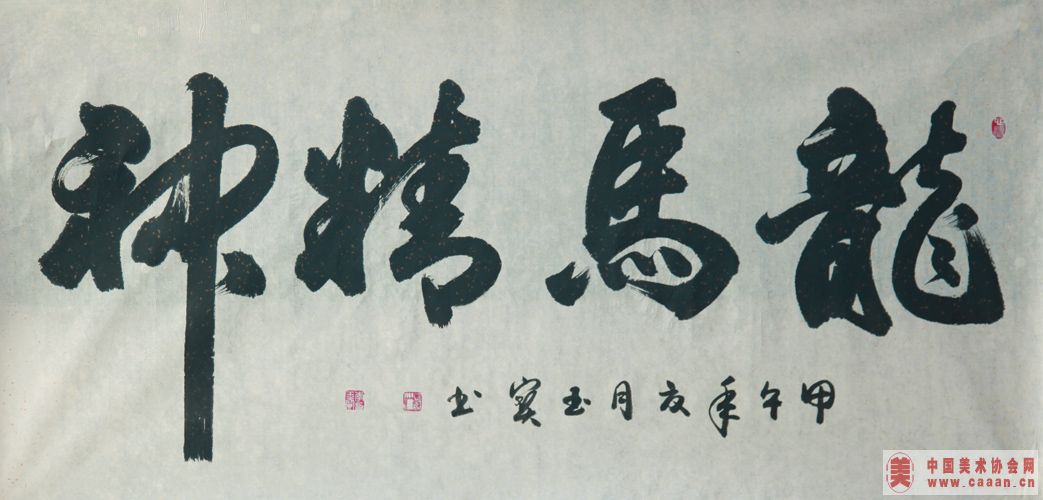 龍馬精神
甲午年夜月玉寶书
中国美术协会网
www.caaan.cn